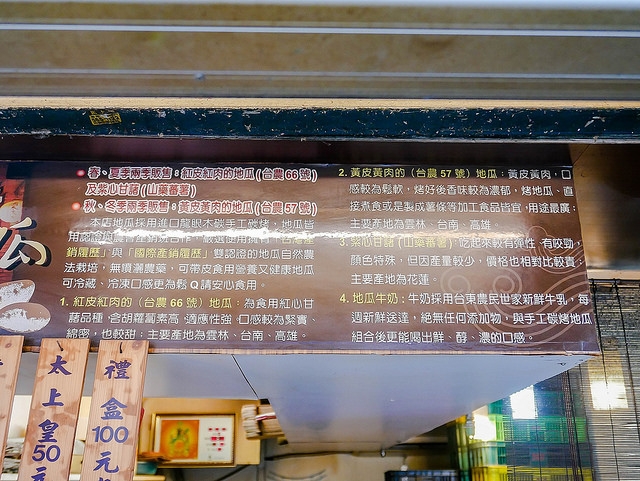 春、夏季兩季販售：紅皮紅肉的地瓜(台農66號)
及紫心甘藷(山藥蕃薯)
秋、冬季兩季販售：黃皮黃肉的地瓜(台農57號)
本店地瓜採用進口龍眼木碳手工碳烤，地瓜皆
銷履歷」與「國際產銷履歷」雙認證的地瓜自然農
法栽培，無噴灑農藥，可帶皮食用營養又健康地瓜
可冷藏、冷凍口感更為鬆Q請安心食用。
1. 紅皮紅肉的（台農66號）地瓜：為食用紅心甘
藷品種，含胡蘿蔔素高，適應性強，口感較為緊實、
綿密，也較甜；主要產地為雲林、台南、高雄。
2. 黃皮黃肉的（台農57號）地瓜：黃皮黃肉，口
感較為鬆軟，烤好後香味較為濃郁，烤地瓜、直
接煮食或是製成薯條等加工食品皆宜，用途最廣；
主要產地為雲林、台南、高雄。
3. 紫心甘藷(山藥蕃薯)：吃起來較有彈性、有咬勁，
顏色特殊，但因產量較少，價格也相對比較貴；
主要產地為花蓮。
4. 地瓜牛奶：牛奶採用台東農民世家新鮮牛乳，每
週新鮮送達，絕無任何添加物，與手工碳烤地瓜
組合後更能喝出鮮、醇、濃的口感。
瓜
太上皇50元
禮盒100元